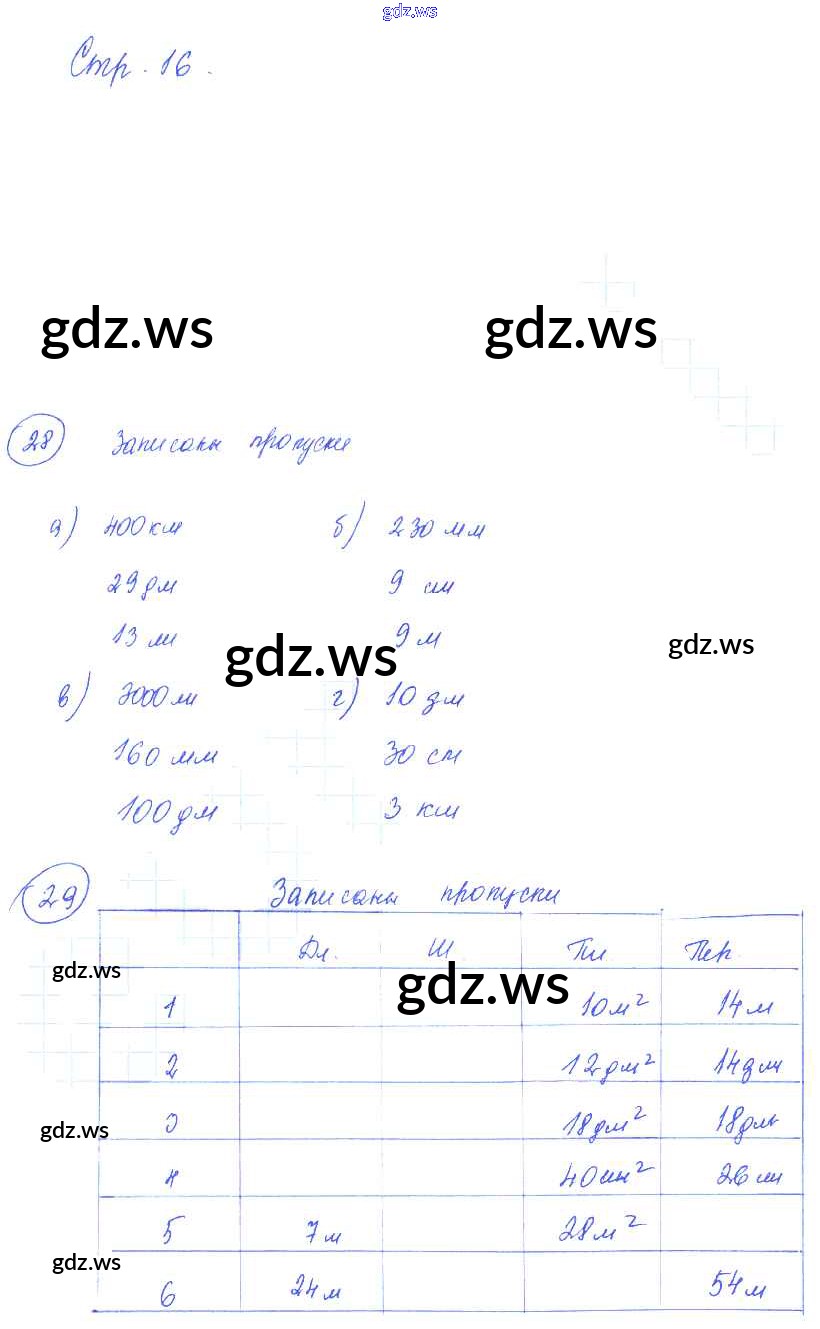 gdz.ws
Стр. 16.
gdz.ws gdz.ws
28 Записаны пропуски
а) 400 км б) 230 мм
29 дм 9 см
13 м 9 м
gdz.ws gdz.ws
в) 3000 м г) 10 дм
160 мм 30 см
100 дм 3 км
29 Записаны пропуски
Дл. Ш. Пл. Пер.
gdz.ws gdz.ws
1 10 м² 14 м
2 12 дм² 14 дм
3 18 дм² 18 дм
gdz.ws
4 40 см² 26 см
5 7 м 28 м²
gdz.ws
6 24 м 54 м